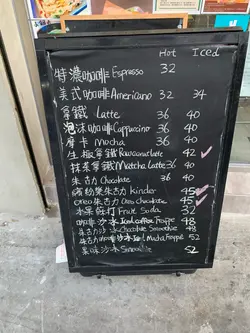 Hot Iced
特濃咖啡 Espresso 32
美式咖啡 Americano 32 34
拿鐵 Latte 36 40
泡沫咖啡 Cappuccino 36 40
摩卡 Mocha 36 40
生椰拿鐵 Raw coconut Latte 42
抹茶拿鐵 Matcha Latte 36 40
朱古力 Chocolate 36 40
繽紛樂朱古力 Kinder 45
Oreo朱古力 Oreo Chocolate 45
水果梳打 Fruit Soda 32
咖啡沙冰 Iced Coffee Frappe 48
朱古力沙冰 Chocolate Smoothie 48
朱古力咖啡沙冰 Mocha Frappe 52
果味沙冰 52